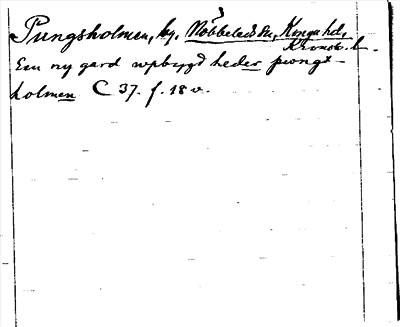 Pungsholmen, by, Nöbbeleds sn, Konga hd,
Kronob. l.
Een ny gard wpbygd heder pwngx-
holmen C 37. f. 18 v.